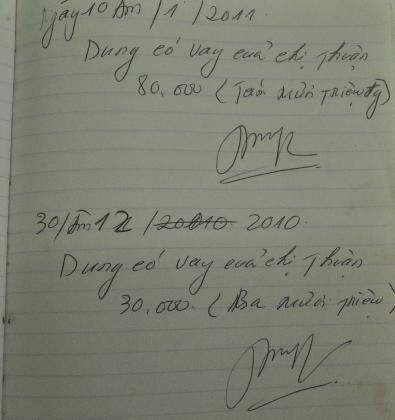 Ngày 10 Âm /1 /2011.
Dung có vay cuả chị Thuận
80.000 (Tám mươi triệu đg)
30/Âm 12 /20010 2010.
Dung có vay cuả chị Thuận
30.000. (Ba mươi triệu)